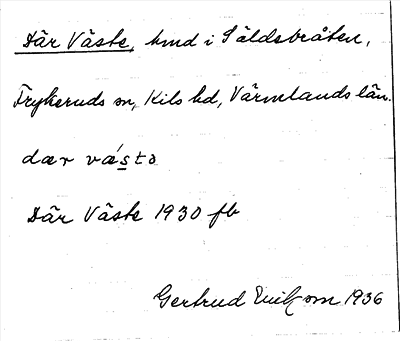 Där Väste, hmd i Säldebråten,
Frykeruds sn, Kils hd, Värmlands län.
dær væ´sto
Där Väste 1930 fb
Gertrud Ericksson 1936